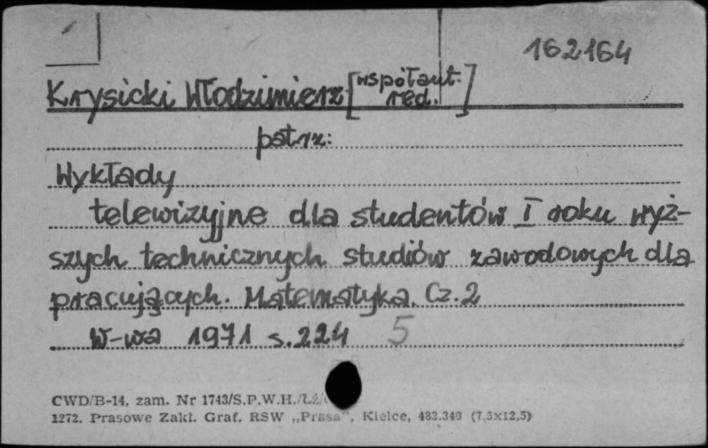 162164
Krysicki Włodzimierz [współaut. red.]
patrz:
Wykłady
telewizyjne dla studentów I roku wyż-
szych technicznych studiów zawodowych dla
pracujących. Matematyka. Cz.2
W-wa 1971 s.224 5
CWD/B-14, zam. Nr 1743/S.P.W.H./Łź/
1272. Prasowe Zakł. Graf. RSW „Prasa", Kielce, 483.340 (7,5x12,5)